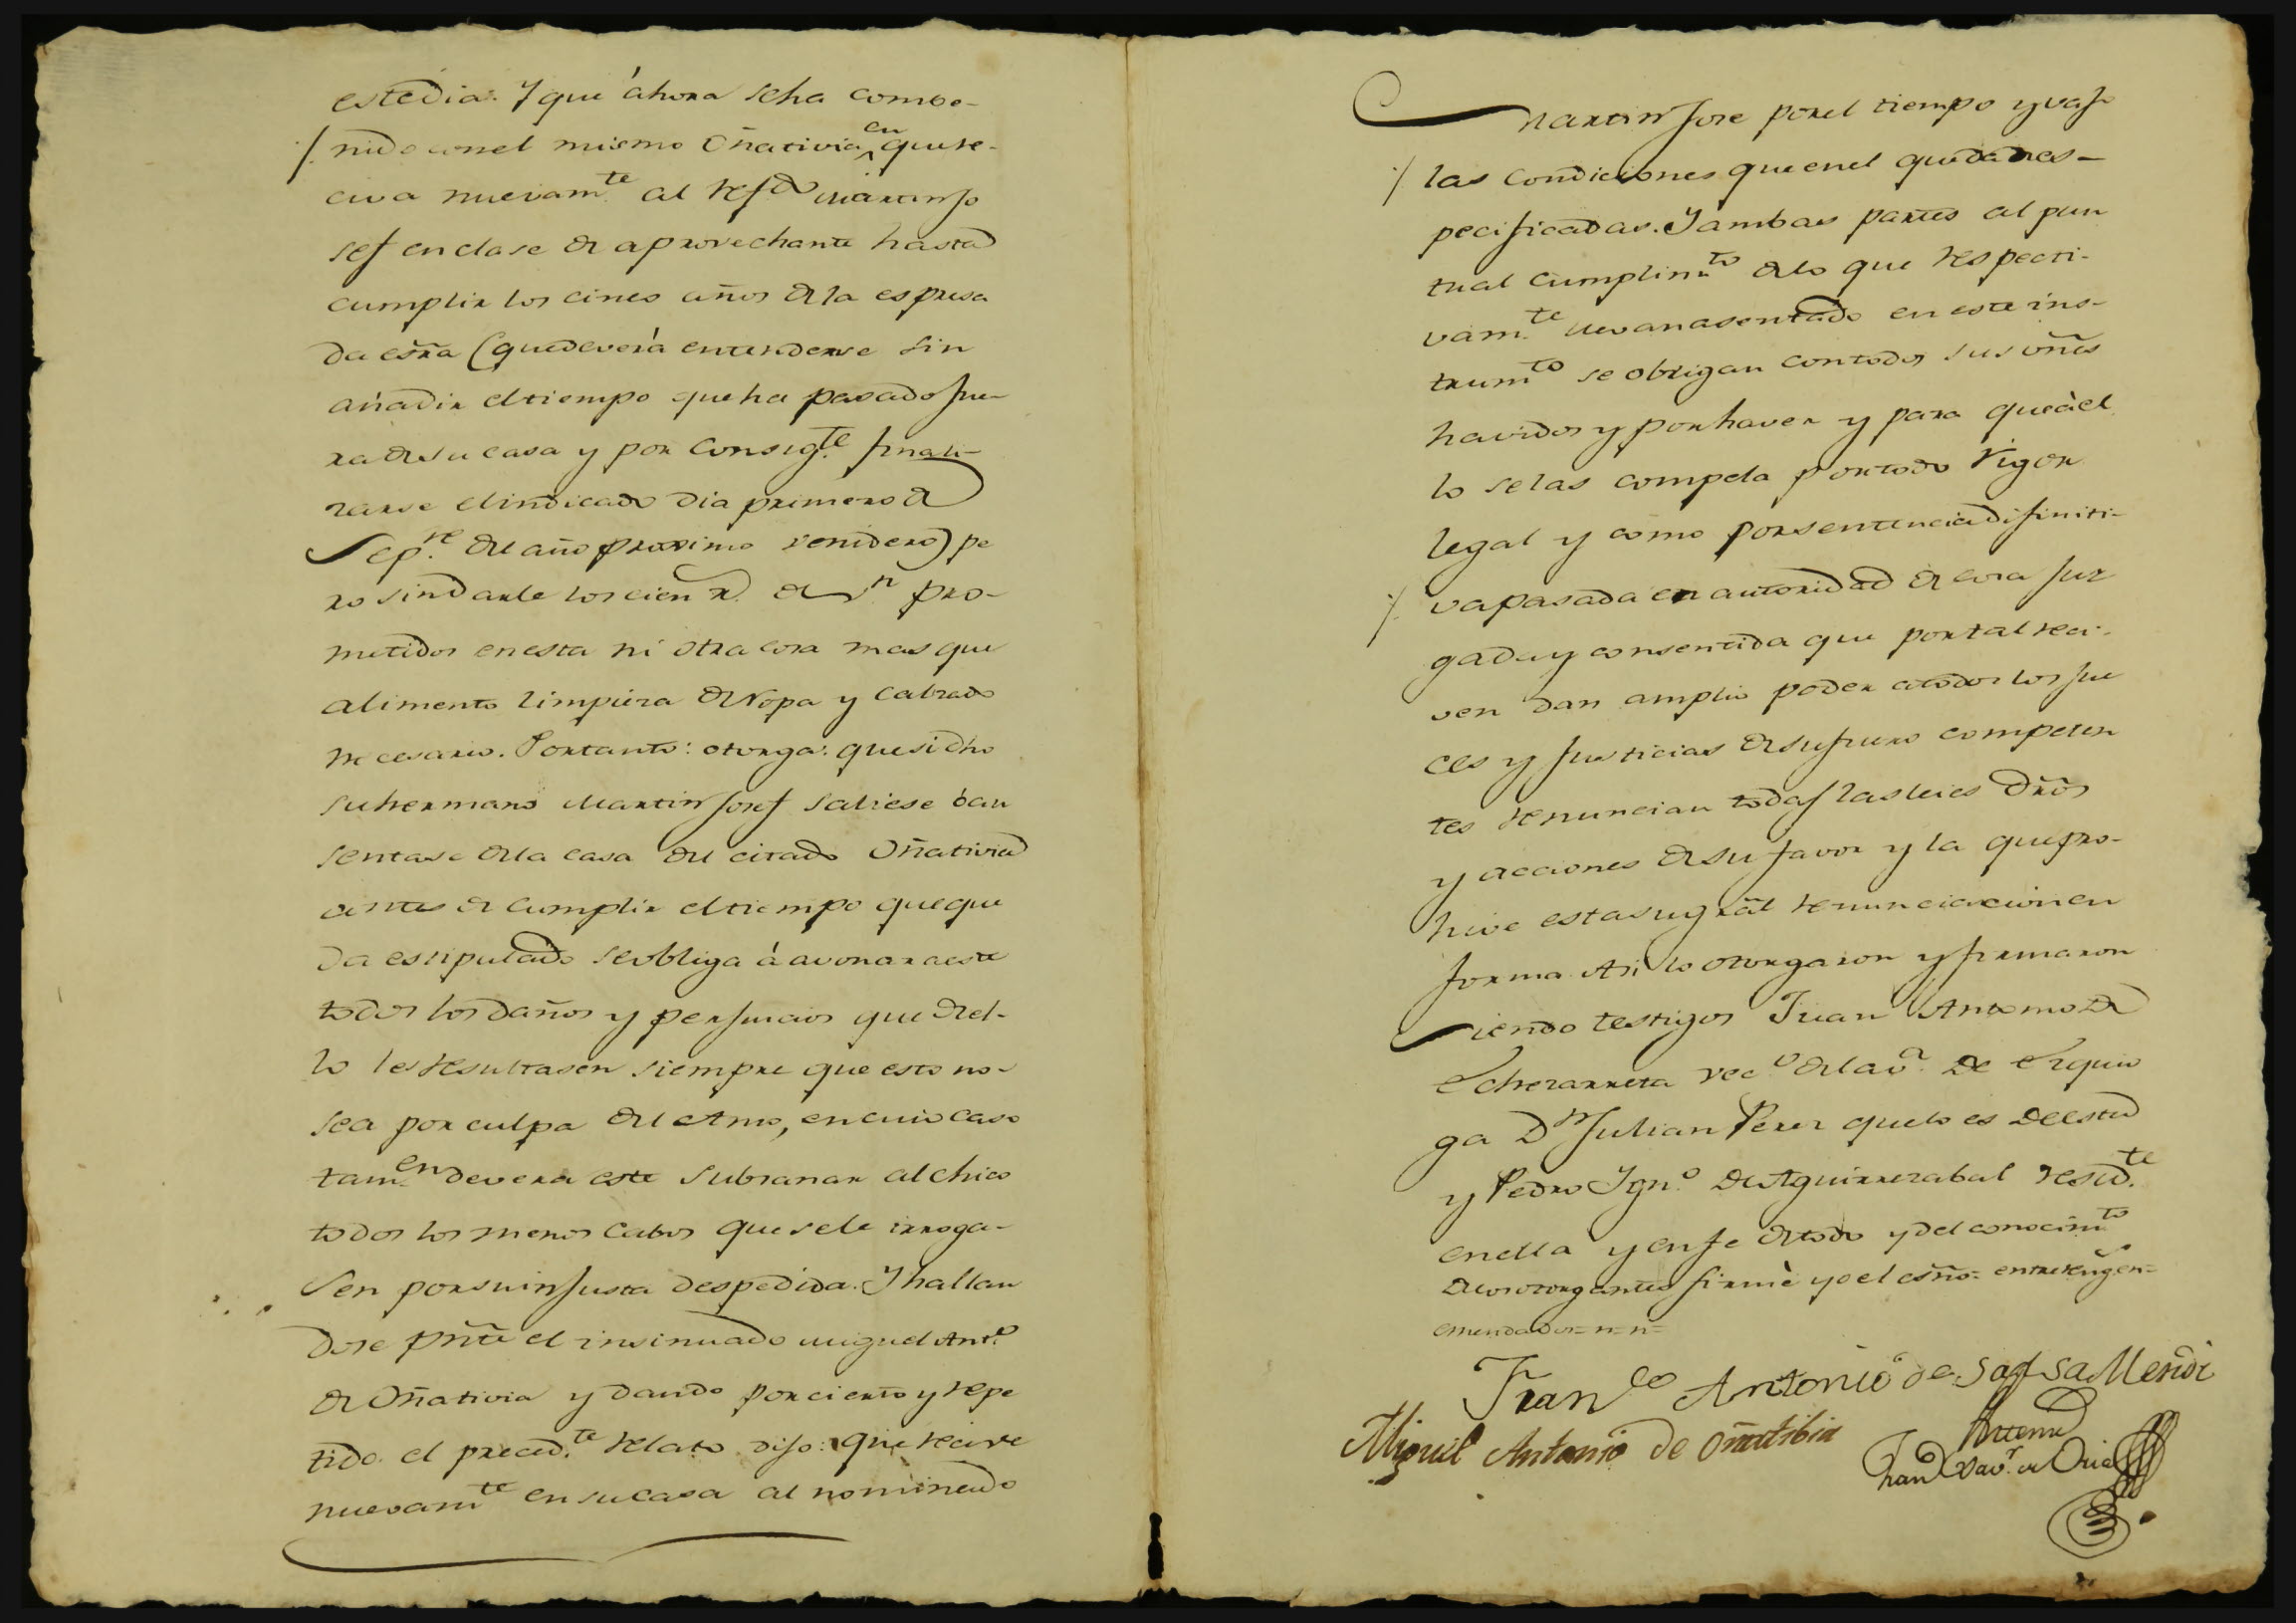 este dia: Y que áhora seha combe-
nido conel mismo Oñativia en que re-
civa nuevam.te al refdo Martin Jo
sef en clase de aprovechante hasta
cumplir los cinco años de la espresa
da esrã (quedeverá entenderse sin
añadir el tiempo que ha pasado fue-
ra de su casa y por consig.te finali-
zarse el indicado dia primero de
Sep.re del año proximo venidero) pe
ro sin darle los cien r.s de v.n pro-
metidos en esta ni otra cosa mas que
alimento limpieza de Ropa y Calzado
necesario. Portanto: otorga: que si dho
su hermano Martin Josef saliese ó au
sentase de la casa del citado Oñativia
antes de cumplir el tiempo que que
da estipulado se obliga á avonar a este
todos los daños y perjuicios que del-
lo le resultasen siempre que esto no-
sea por culpa del Amo, en cuio caso
tam.en devera este subsanar al chico
todos los menos cabos que se le irroga-
sen por su injusta despedida. Y hallan
dose pñte el insinuado Miguel Ant.o
de Oñativia y dando por cierto y repe
tido el preced.te relato dijo: que recive
nuevam.te en su casa al nominado
Martin Jose por el tiempo y vajo
las condiciones que en el quedan es-
pecificadas. Y ambas partes al pun
tual cumplim.to de lo que respecti-
vam.te llevan asentado en este ins-
trum.to se obligan con todos sus vñes
havidos y por haver y para que à el
lo se las compela por todo rigor
legal y como por sentencia difiniti-
va pasada en autoridad de cosa juz
gada y consentida que por tal reci-
ven dan amplio poder a todos los Jue
ces y Justicias de su fuero competen
tes renuncian todas las leies drõs
y acciones de su favor y la que pro-
hive esta su grãl renunciacion en
forma. Asi lo otorgaron y firmaron
siendo testigos Juan Antonio de
Echezarreta vec.o de la v.a de Ezquio
ga D.n Julian Perez que lo es de esta
y Pedro Ygn.o de Aguirrezabal resid.te
en ella y en fe de todo y del conocim.to
de los otorgantes firmé yo el esño: entrerreng.on=
emendados= n= n=
Fran.co Antonio de Sagasa Mendi
Miguel Antonio de Oñatibia
Antemi
Fran.co Xav.r de Oria